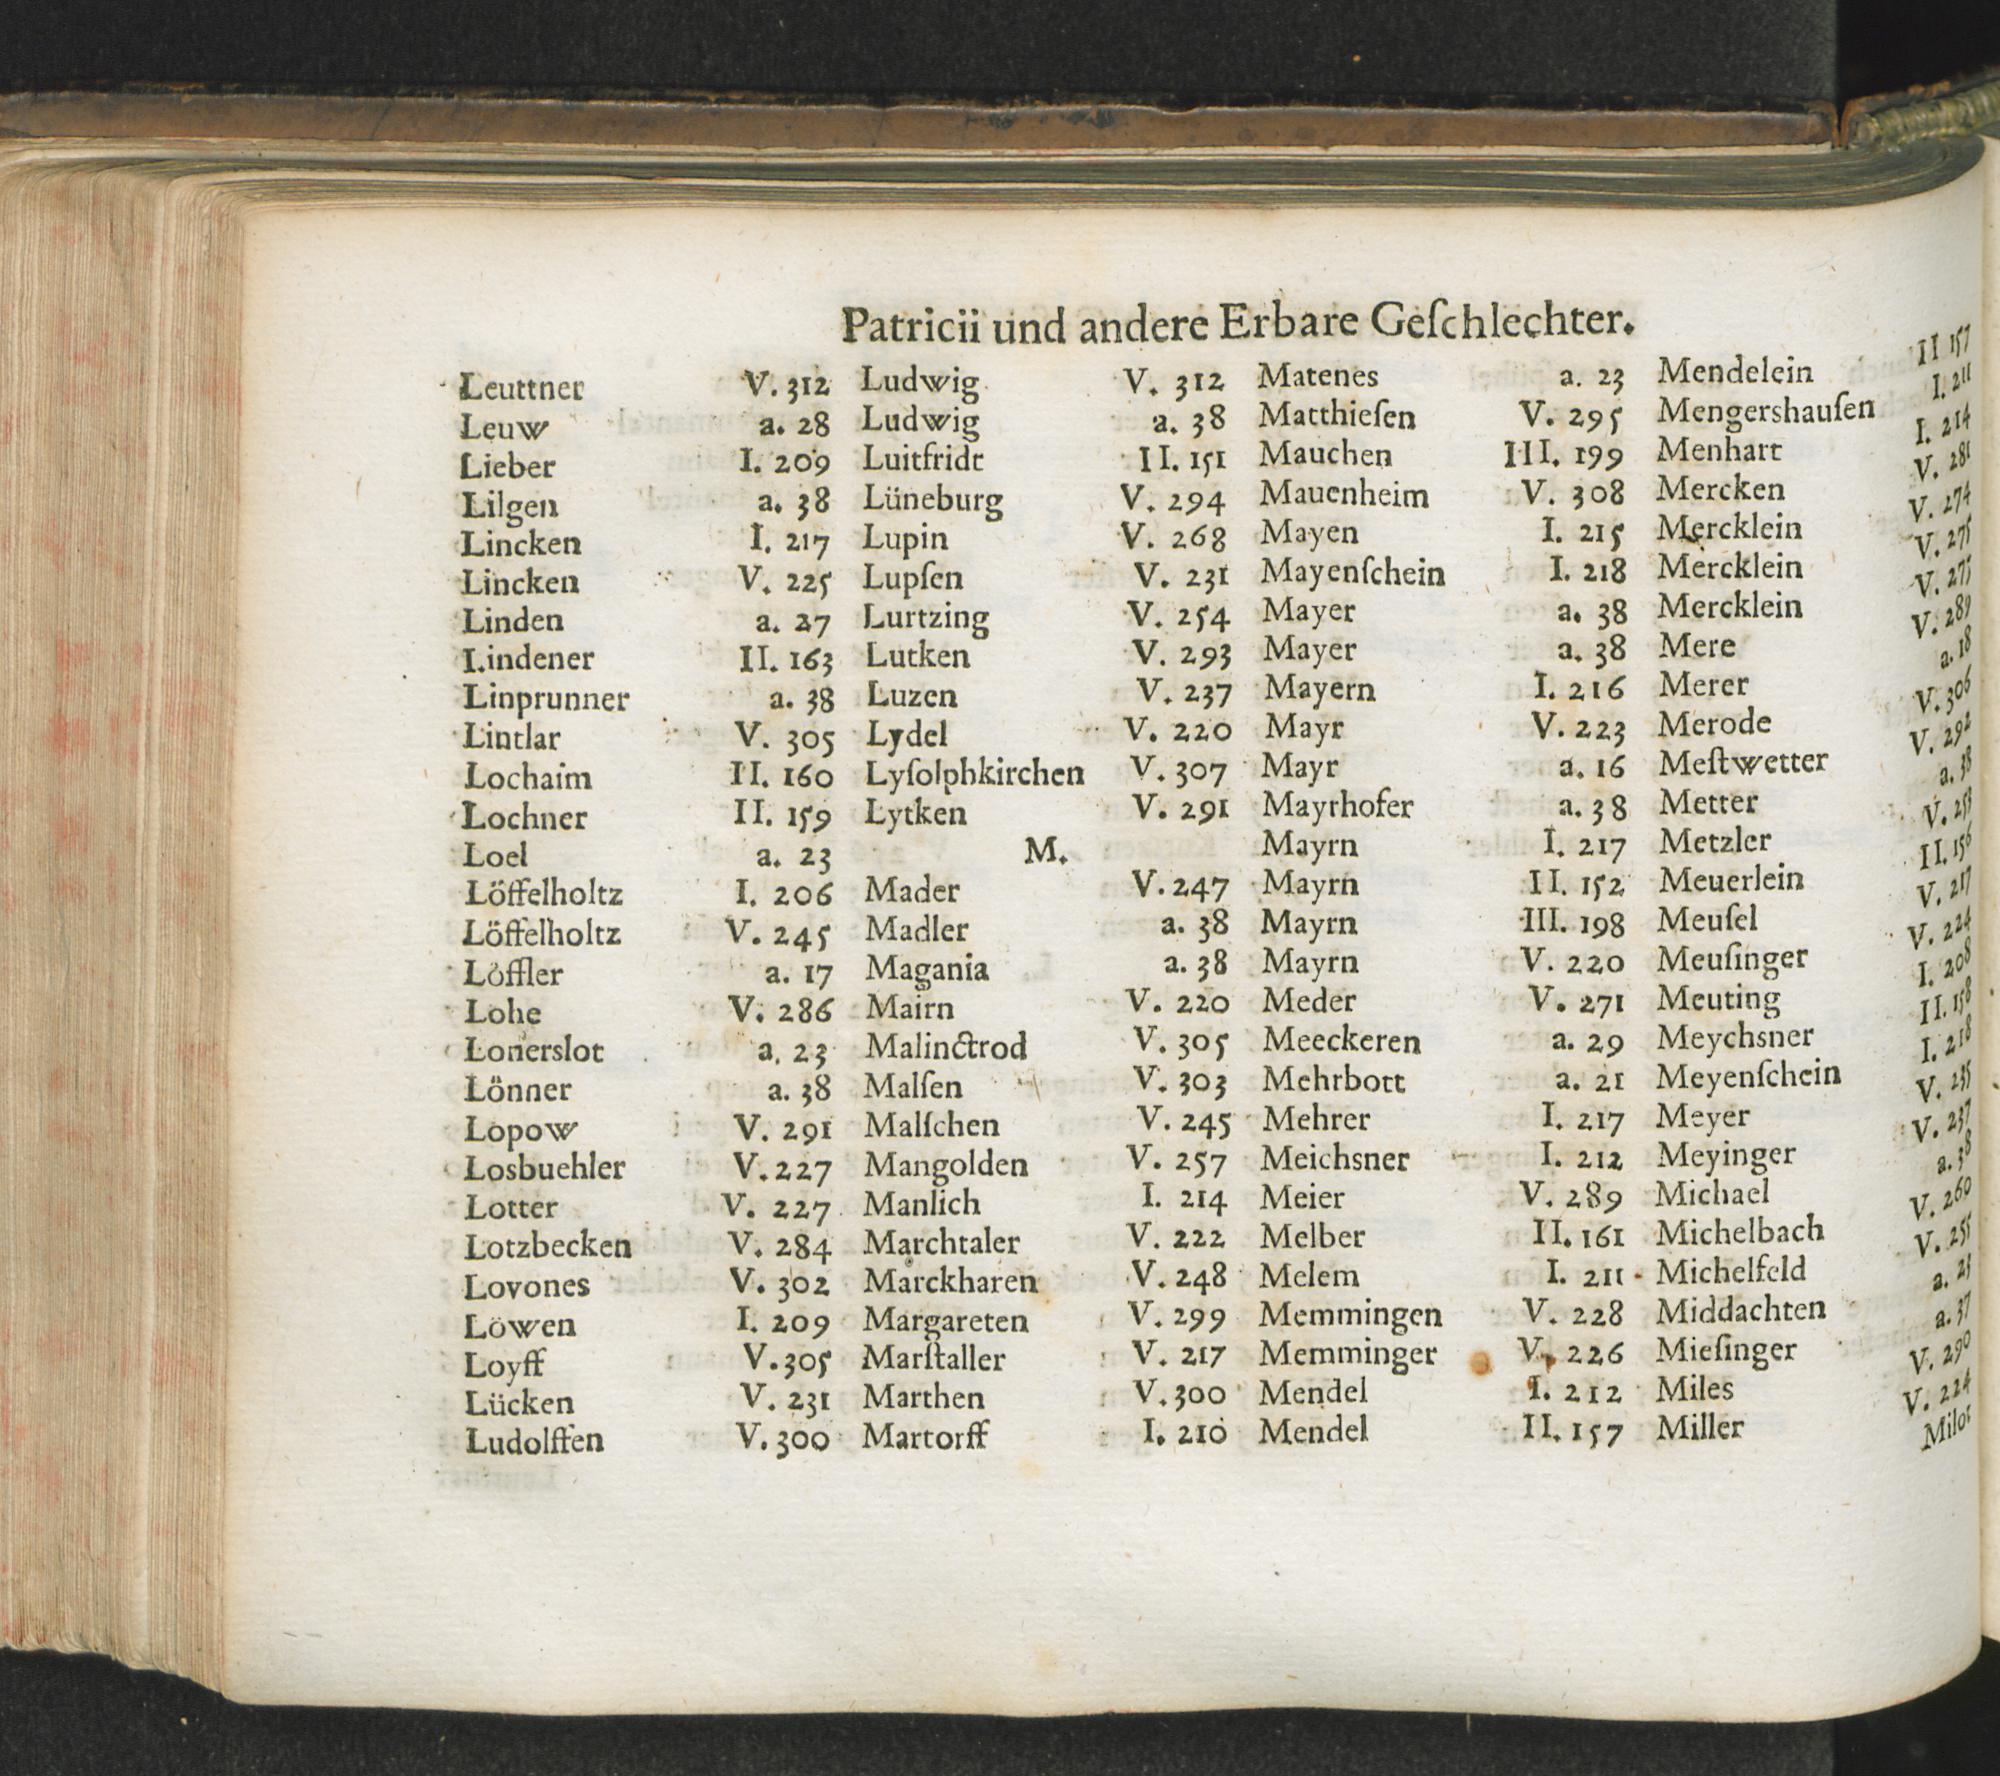 Patricii und andere Erbare Geſchlechter.
Leuttner V. 312
Leuw a. 28
Lieber I. 209
Lilgen a. 38
Lincken I. 217
Lincken V. 225
Linden a. 27
Lindener II. 163
Linprunner a. 38
Lintlar V. 305
Lochaim II. 160
Lochner II. 159
Loel a. 23
Löffelholtz I. 206
Löffelholtz V. 245
Löffler a. 17
Lohe V. 286
Lonerslot a. 23
Lönner a. 38
Lopow V. 291
Losbuehler V. 227
Lotter V. 227
Lotzbecken V. 284
Lovones V. 302
Löwen I. 209
Loyff V. 305
Lücken V. 231
Ludolffen V. 300
Ludwig V. 312
Ludwig a. 38
Luitfridt II. 151
Lüneburg V. 294
Lupin V. 268
Lupſen V. 231
Lurtzing V. 254
Lutken V. 293
Luzen V. 237
Lydel V. 220
Lyſolphkirchen V. 307
Lytken V. 291
M.
Mader V. 247
Madler a. 38
Magania a. 38
Mairn V. 220
Malinctrod V. 305
Malſen V. 303
Malſchen V. 245
Mangolden V. 257
Manlich I. 214
Marchtaler V. 222
Marckharen V. 248
Margareten V. 299
Marſtaller V. 217
Marthen V. 300
Martorff I. 210
Matenes a. 23
Matthieſen V. 295
Mauchen III. 199
Mauenheim V. 308
Mayen I. 215
Mayenſchein I. 218
Mayer a. 38
Mayer a. 38
Mayern I. 216
Mayr V. 223
Mayr a. 16
Mayrhofer a. 38
Mayrn I. 217
Mayrn II. 152
Mayrn III. 198
Mayrn V. 220
Meder V. 271
Meeckeren a. 29
Mehrbott a. 21
Mehrer I. 217
Meichsner I. 212
Meier V. 289
Melber II. 161
Melem I. 211
Memmingen V. 228
Memminger V. 226
Mendel I. 212
Mendel II. 157
Mendelein II 157
Mengershauſen I. 211
Menhart I. 214
Mercken V. 281
Mercklein V. 274
Mercklein V. 275
Mercklein V. 275
Mere V. 289
Merer a. 18
Merode V. 306
Meſtwetter V. 292
Metter a. 38
Metzler V. 258
Meuerlein II. 156
Meuſel V. 217
Meuſinger V. 224
Meuting I. 208
Meychsner II. 158
Meyenſchein I. 218
Meyer V. 235
Meyinger V. 237
Michael a. 38
Michelbach V. 260
Michelfeld V. 255
Middachten a.
Mieſinger a. 37
Miles V. 290
Miller V. 224